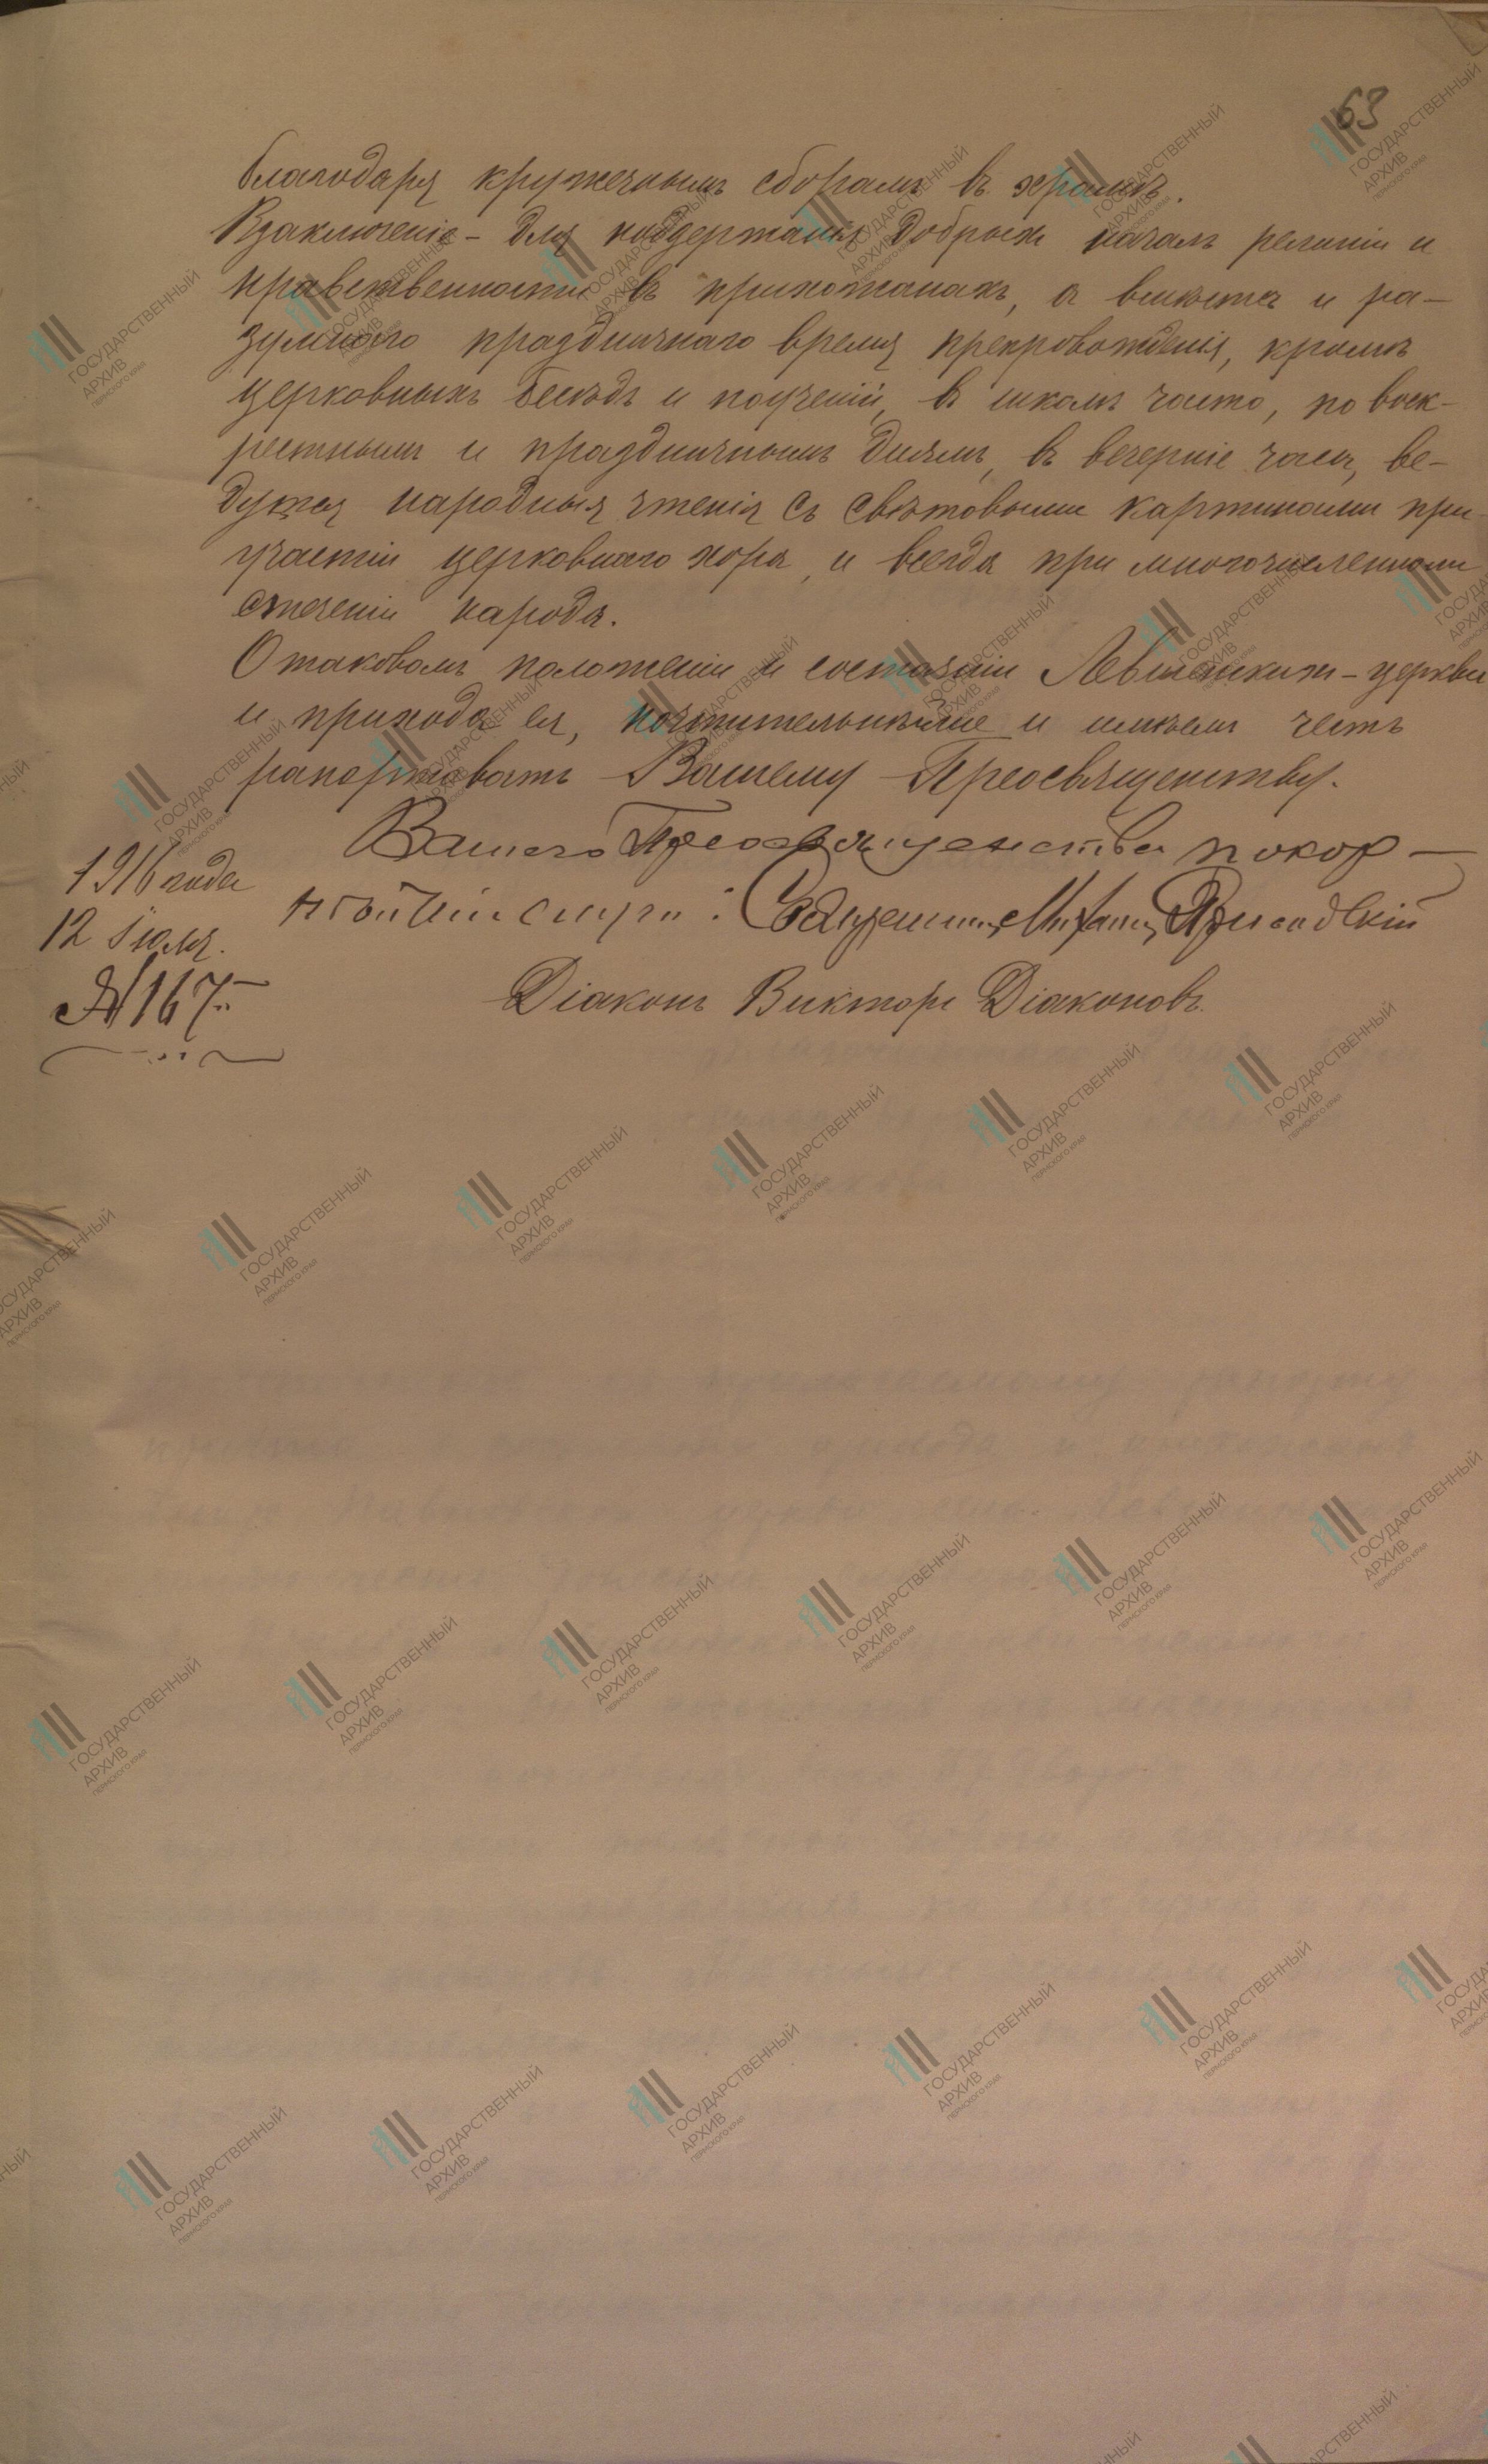 63
благодаря кружечнымъ сборамъ въ храмѣ.
Взаключеніе - для поддержанія добрыхъ началъ религіи и
нравственности въ прихожанахъ, а вмѣстѣ и ра-
зумнаго праздничнаго время препровожденія, кромѣ
церковныхъ бесѣдъ и поученій, въ школѣ часто, по воск-
реснымъ и праздничнымъ днямъ, въ вечерніе часы, ве-
дутся народныя чтенія съ свѣтовыми картинами при
участіи церковнаго хора, и всегда при многочисленномъ
стеченіи народа.
О таковомъ положеніи и состояніи Левшинской - церкви
и прихода ея, почтительнѣйше и имѣемъ честь
рапортовать Вашему Преосвященству.
Вашего Преосвященства покор-
нѣйшіе слуги: Священникъ Михаилъ
Діаконъ Викторъ Діаконовъ.
1916 года
12 Іюля.
№ 167.